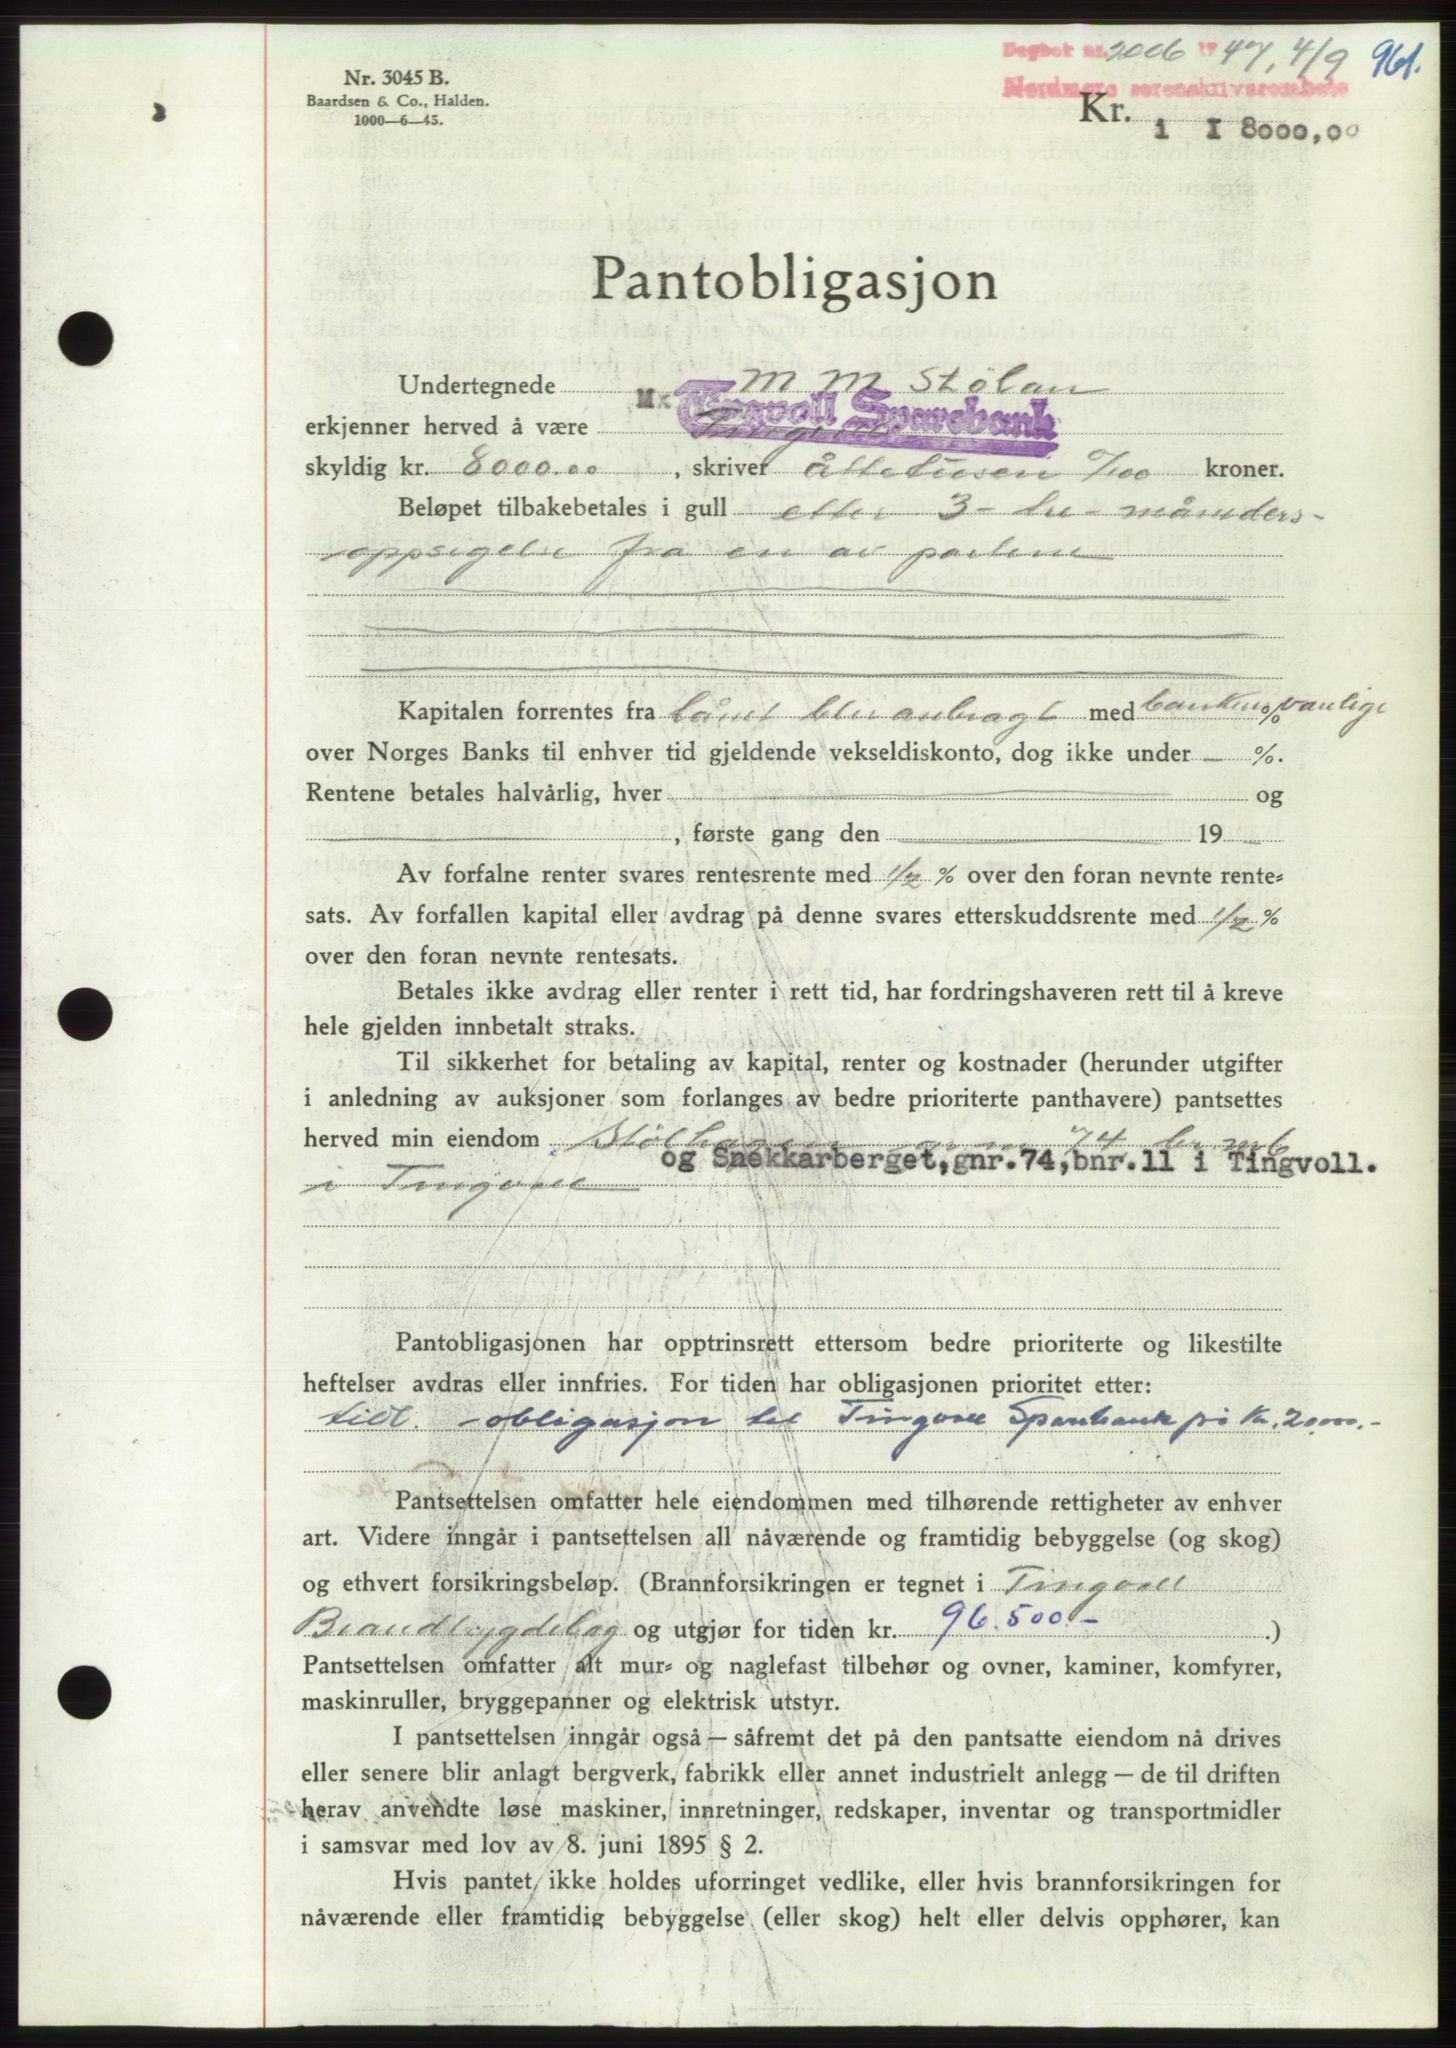 Dagbok nr. 2006 1947, 4/9 961.
Nordmøre sorenskriverembete
Nr. 3045 B.
Baardsen & Co., Halden.
1000—6—45.
Kr. 8000,00
Pantobligasjon
Undertegnede M M Stölan
erkjenner herved å være Tingvoll Sparebank
skyldig kr. 8000.00, skriver åttetusen 0/100 kroner.
Beløpet tilbakebetales i gull etter 3- tre- måneders-
oppsigelse fra en av partene
Kapitalen forrentes fra lånet blir anbragt med bankens vanlige %
over Norges Banks til enhver tid gjeldende vekseldiskonto, dog ikke under — %.
Rentene betales halvårlig, hver og
, første gang den 19
Av forfalne renter svares rentesrente med 1/2 % over den foran nevnte rente-
sats. Av forfallen kapital eller avdrag på denne svares etterskuddsrente med 1/2 %
over den foran nevnte rentesats.
Betales ikke avdrag eller renter i rett tid, har fordringshaveren rett til å kreve
hele gjelden innbetalt straks.
Til sikkerhet for betaling av kapital, renter og kostnader (herunder utgifter
i anledning av auksjoner som forlanges av bedre prioriterte panthavere) pantsettes
herved min eiendom Stölhagen 74
og Snekkarberget, gnr. 74, bnr. 11 i Tingvoll.
i Tingvoll
Pantobligasjonen har opptrinsrett ettersom bedre prioriterte og likestilte
heftelser avdras eller innfries. For tiden har obligasjonen prioritet etter:
obligasjon til Tingvoll Sparebank på kr. 20.000.-
Pantsettelsen omfatter hele eiendommen med tilhørende rettigheter av enhver
art. Videre inngår i pantsettelsen all nåværende og framtidig bebyggelse (og skog)
og ethvert forsikringsbeløp. (Brannforsikringen er tegnet i Tingvoll
Brandbygdelag og utgjør for tiden kr. 96.500.- .)
Pantsettelsen omfatter alt mur- og naglefast tilbehør og ovner, kaminer, komfyrer,
maskinruller, bryggepanner og elektrisk utstyr.
I pantsettelsen inngår også — såfremt det på den pantsatte eiendom nå drives
eller senere blir anlagt bergverk, fabrikk eller annet industrielt anlegg — de til driften
herav anvendte løse maskiner, innretninger, redskaper, inventar og transportmidler
i samsvar med lov av 8. juni 1895 § 2.
Hvis pantet ikke holdes uforringet vedlike, eller hvis brannforsikringen for
nåværende eller framtidig bebyggelse (eller skog) helt eller delvis opphører, kan